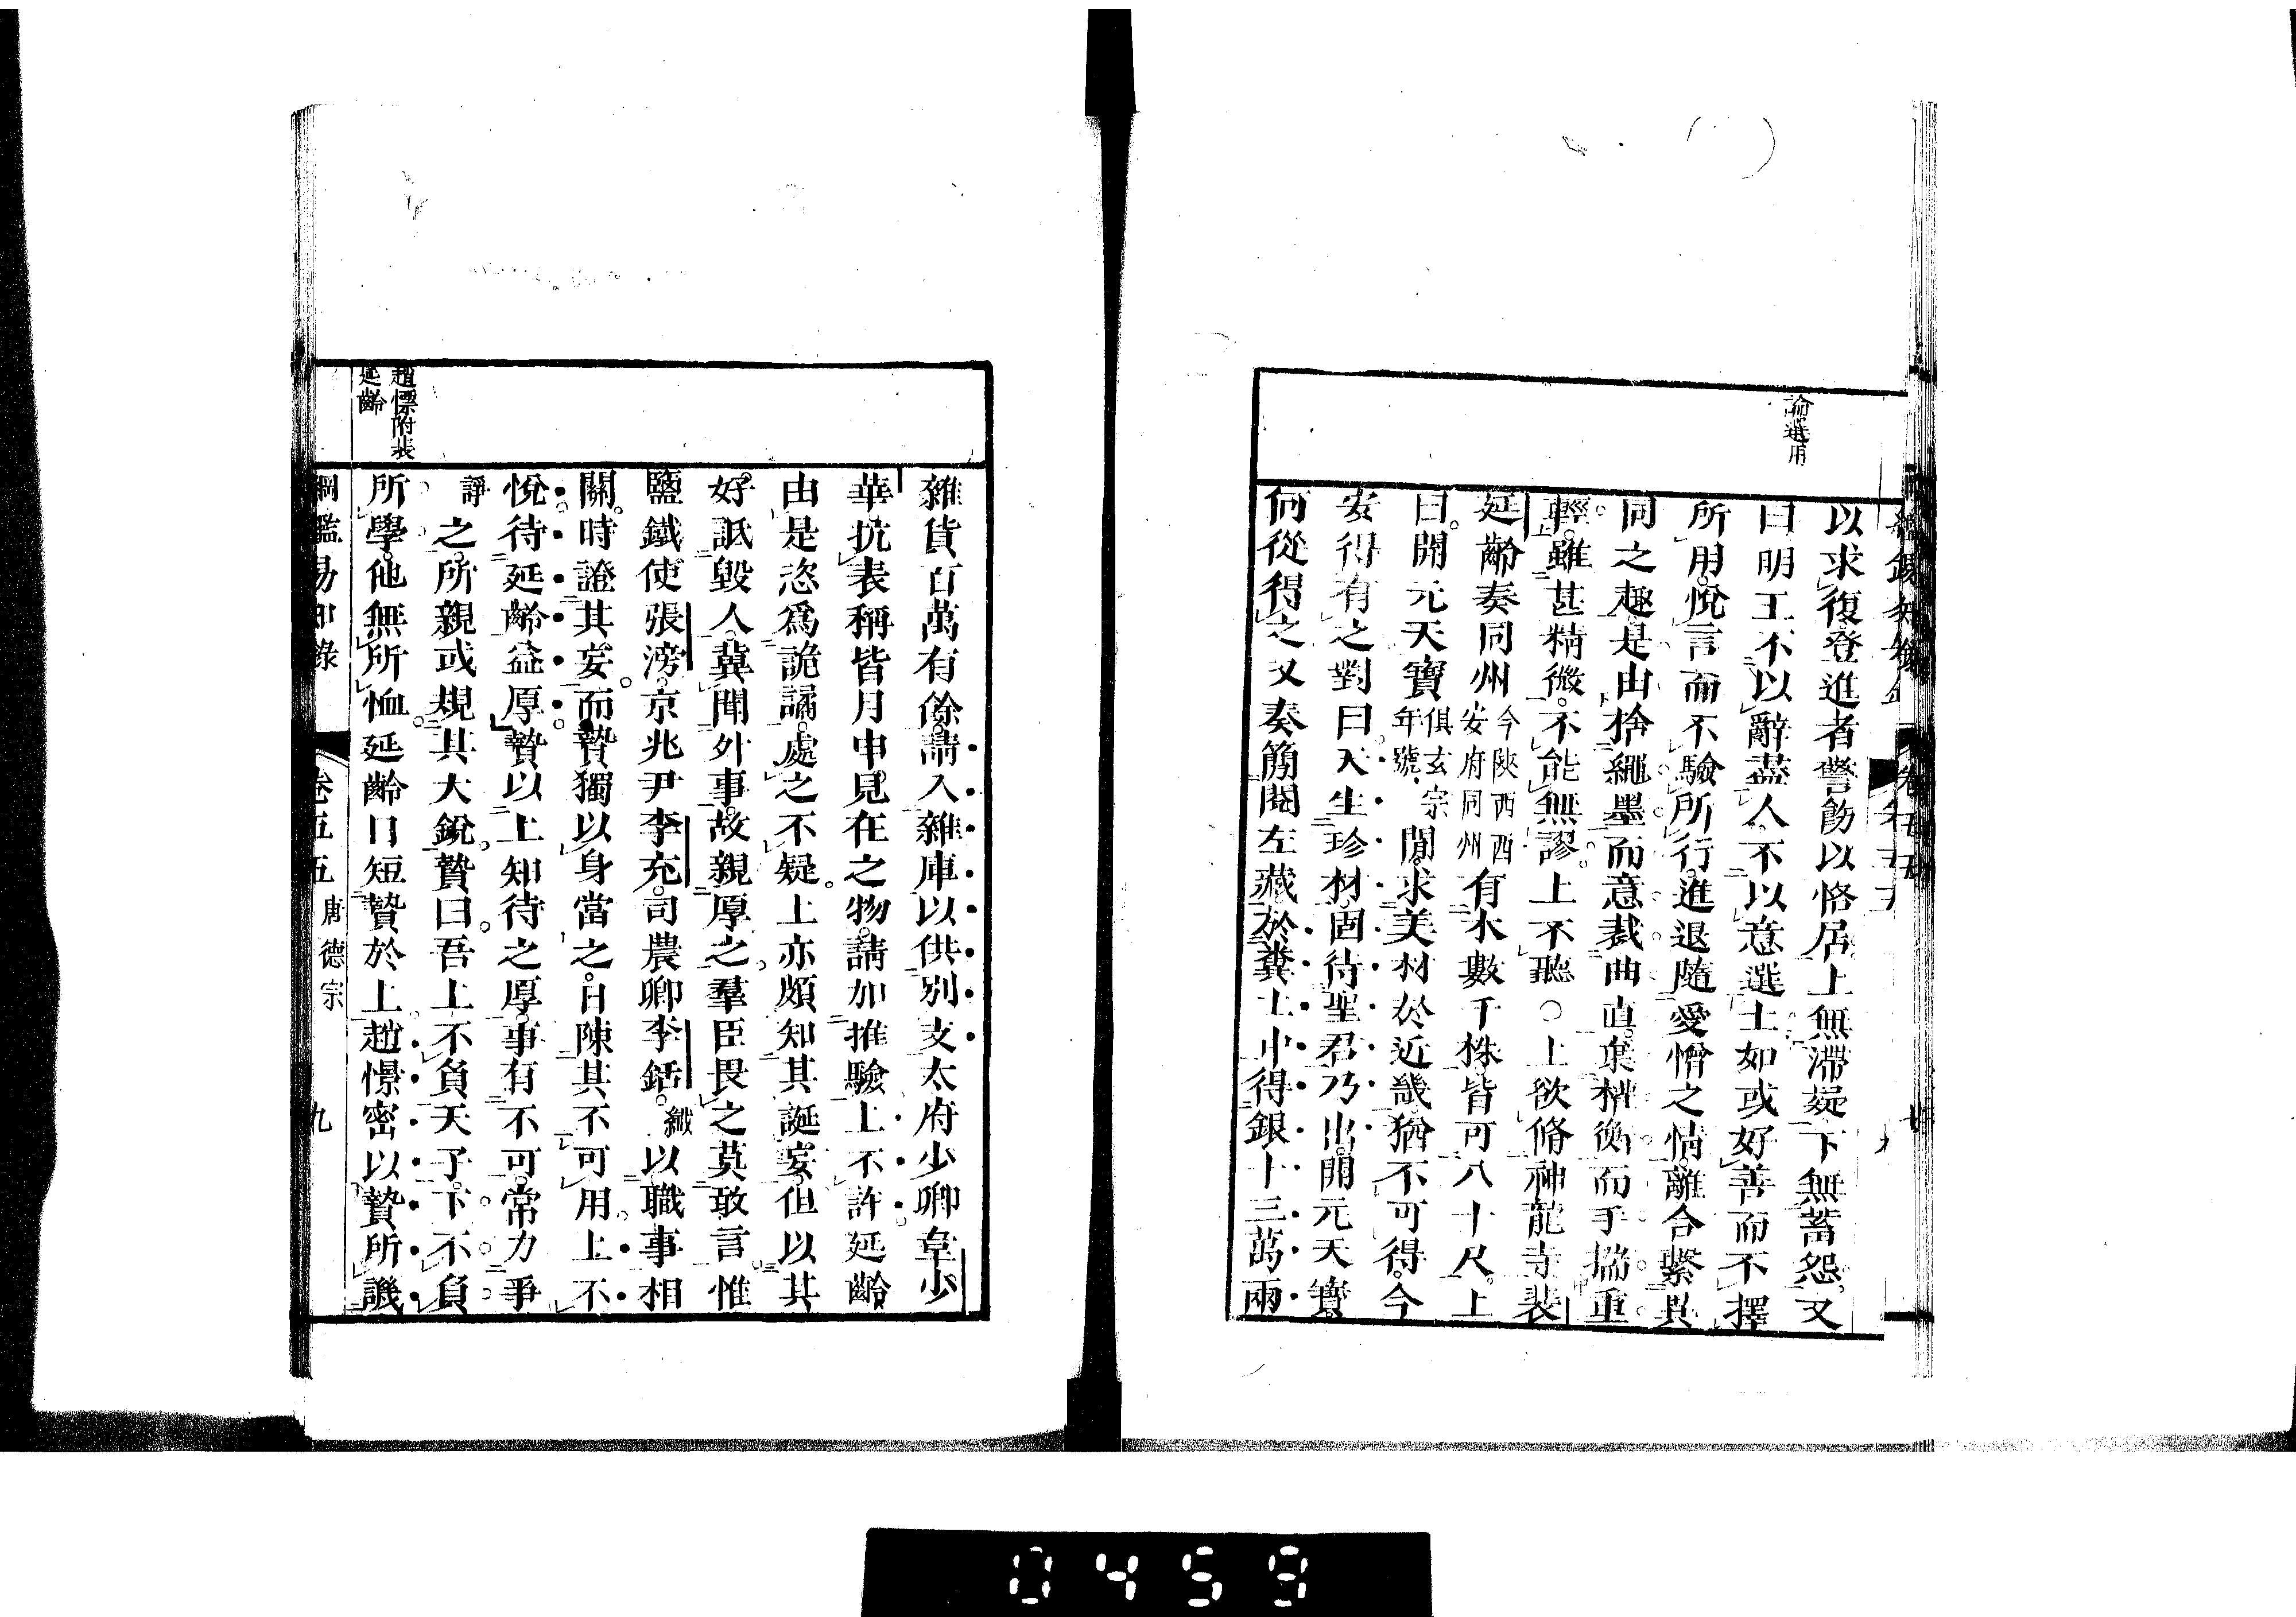 論選用
以求復登進者警飭以恪居上無滯疑下無蓄怨又
曰明王不以辭盡人不以意選士如或好善而不擇
所用悅言而不驗所行進退隨愛憎之情離合繫異
同之趣是由捨繩墨而意裁曲直棄權衡而手揣重
輕雖甚精微不能無謬上不聽○上欲脩神龍寺裴
延齡奏同州今陝西西安府同州有木數千株皆可八十尺上
曰開元天寶俱玄宗年號間求美材於近畿猶不可得今
安得有之對曰天生珍材固待聖君乃出開元天寶
何從得之又奏簡閱左藏於糞土中得銀十三萬兩
雜貨百萬有餘請入雜庫以供別支太府少卿韋少
華抗表稱皆月申見在之物請加推驗上不許延齡
由是恣為詭譎處之不疑上亦頗知其誕妄但以其
好詆毀人冀聞外事故親厚之羣臣畏之莫敢言惟
鹽鐵使張滂京兆尹李充司農卿李銛纎以職事相
關時證其妄而贄獨以身當之日陳其不可用上不
悅待延齡益厚贄以上知待之厚事有不可常力爭
諍之所親或規其大銳贄曰吾上不負天子下不負
所學他無所恤延齡日短贄於上趙憬密以贄所譏
趙憬附裴
延齡
綱鑑易知錄 卷五五 唐德宗 九